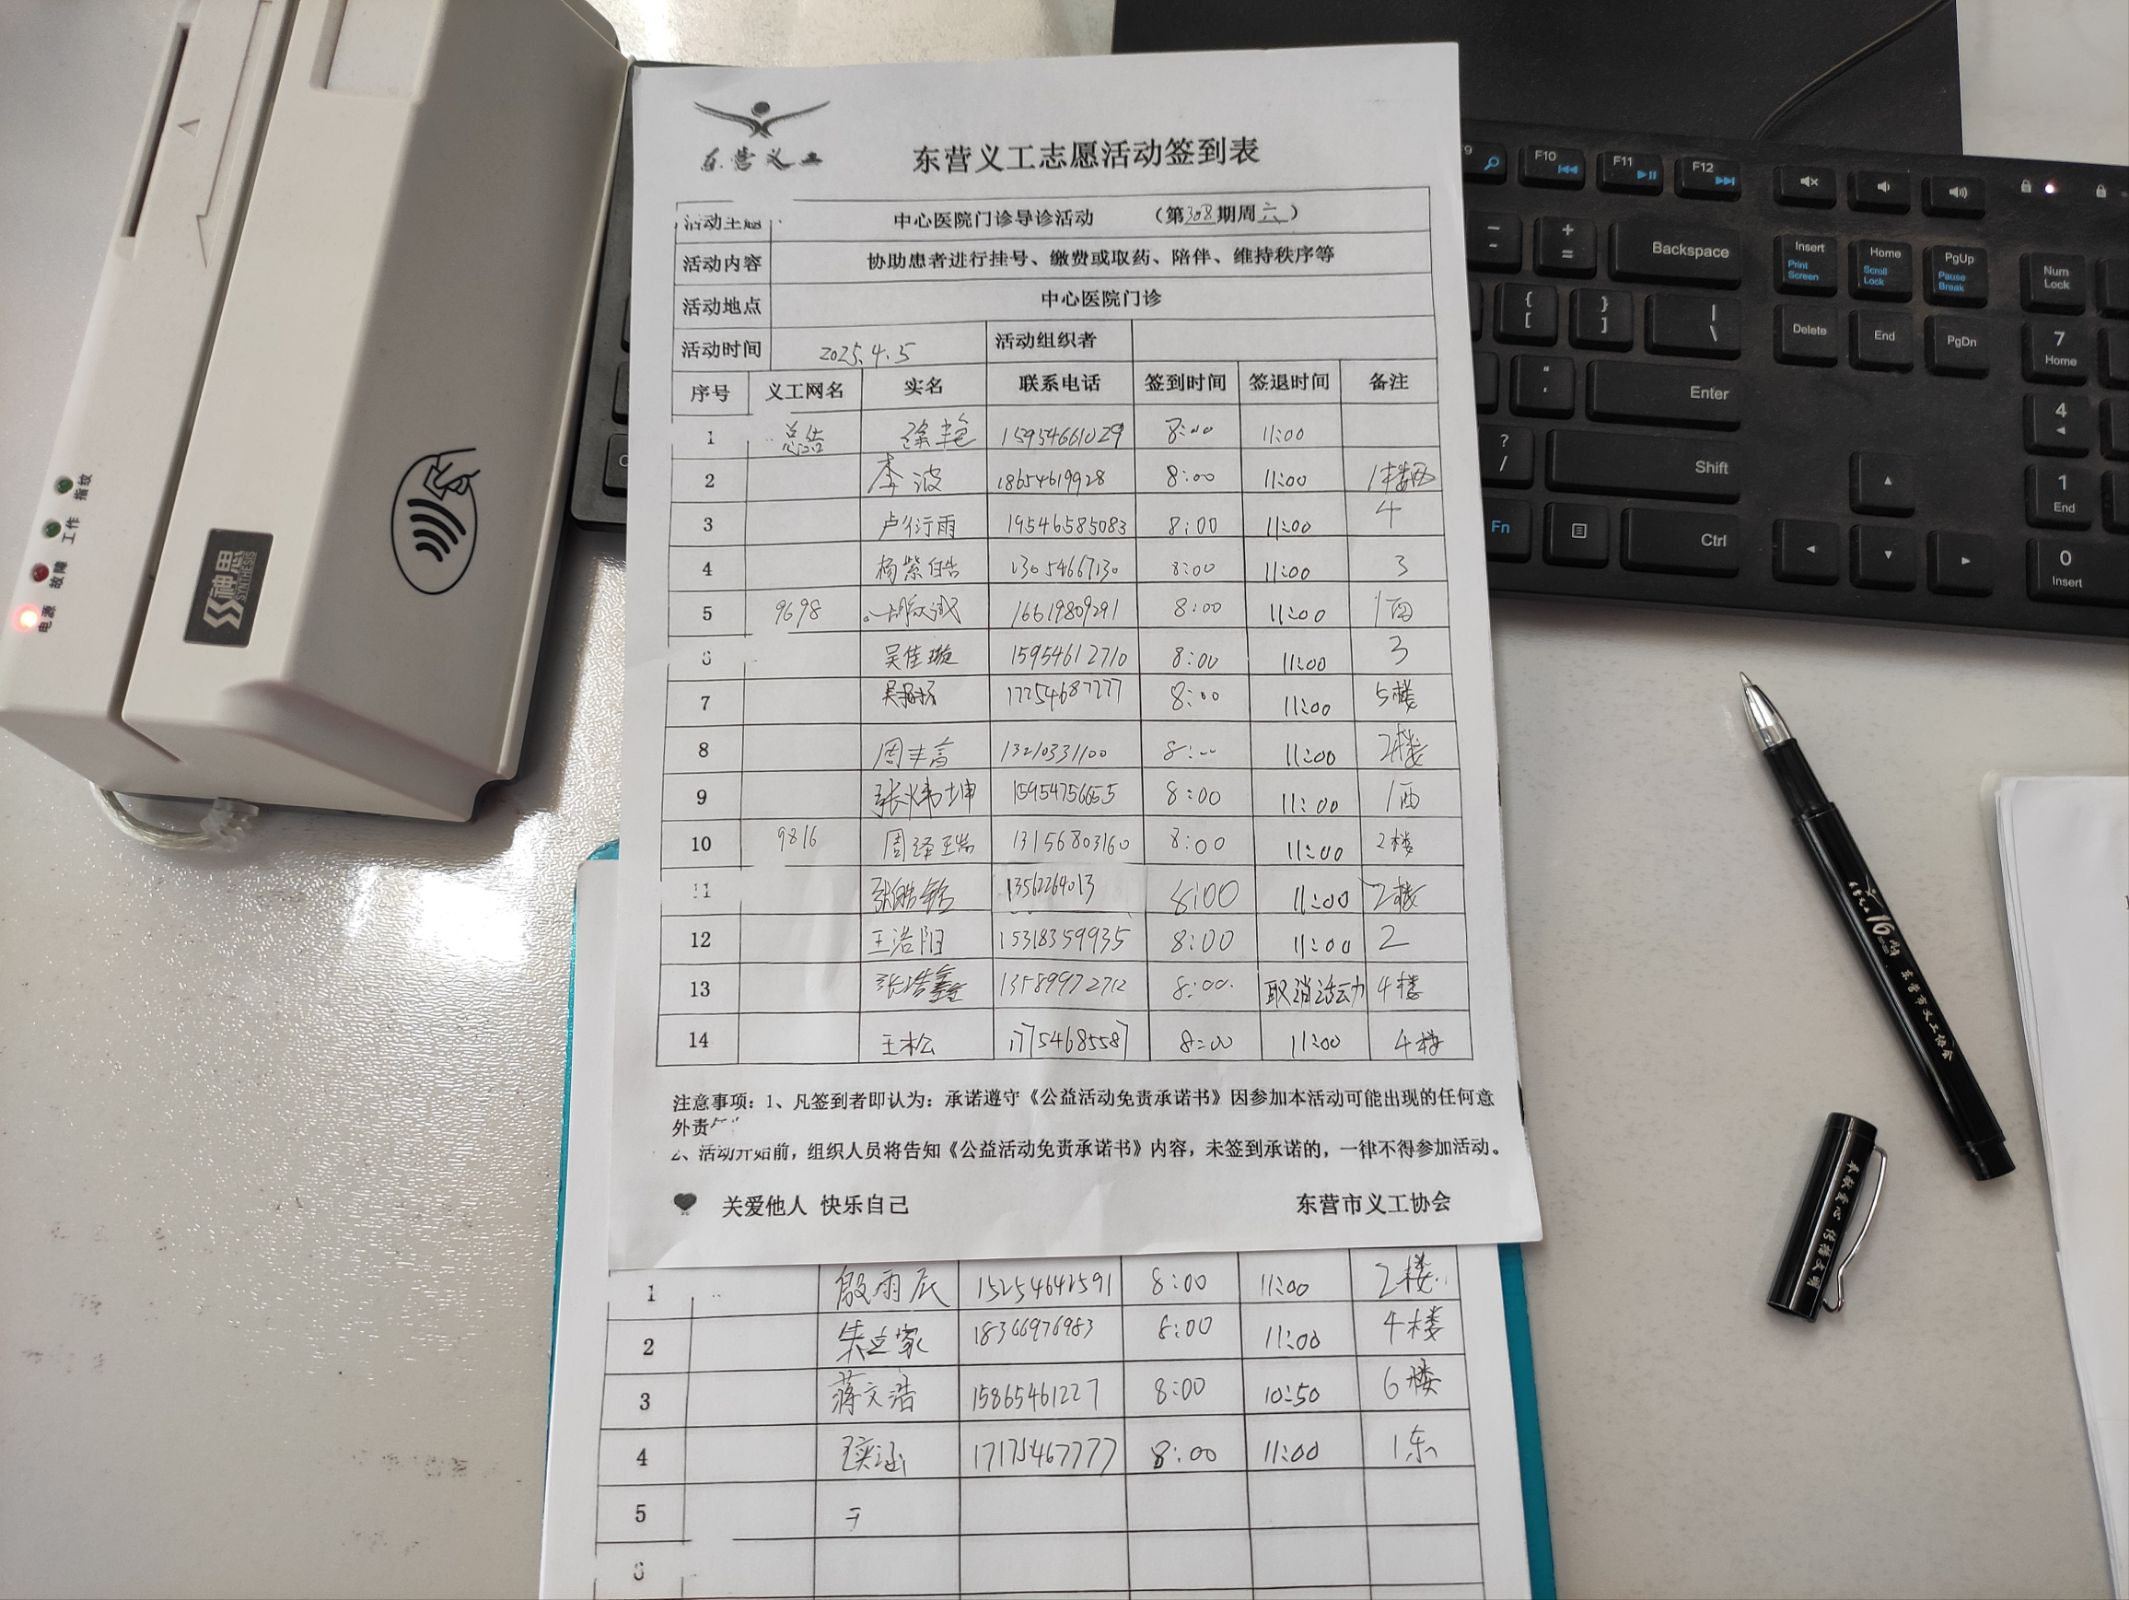 东营义工
东营义工志愿活动签到表
活动主题 中心医院门诊导诊活动 （第308期周六）
活动内容 协助患者进行挂号、缴费或取药、陪伴、维持秩序等
活动地点 中心医院门诊
活动时间 2025.4.5 活动组织者
序号 义工网名 实名 联系电话 签到时间 签退时间 备注
1 15954661029 8:00 11:00
2 李波 18654619928 8:00 11:00 1楼西
3 卢衍雨 19546585083 8:00 11:00 4
4 杨紫皓 13054667130 8:00 11:00 3
5 9698 16619809291 8:00 11:00 1西
6 吴佳璇 15954612710 8:00 11:00 3
7 17254687777 8:00 11:00 5楼
8 周丰富 13210331100 8:00 11:00 2楼
9 张炜坤 15954756655 8:00 11:00 1西
10 9816 周泽瑞 13156803160 8:00 11:00 2楼
11 张皓铭 13562269013 8:00 11:00 2楼
12 王浩阳 15318359935 8:00 11:00 2
13 张浩鑫 13589972712 8:00 取消活动 4楼
14 王松 17754685587 8:00 11:00 4楼
注意事项：1、凡签到者即认为：承诺遵守《公益活动免责承诺书》因参加本活动可能出现的任何意
外责
2、活动开始前，组织人员将告知《公益活动免责承诺书》内容，未签到承诺的，一律不得参加活动。
关爱他人 快乐自己 东营市义工协会
1 殷雨辰 15254642591 8:00 11:00 2楼
2 朱立家 18366976983 8:00 11:00 4楼
3 蒋文浩 15865461227 8:00 10:50 6楼
4 17175467777 8:00 11:00 1东
5
6
指纹
工作
故障
电源
神思
SYNTHESIS
F9
F10
F11
F12
Backspace
Insert
Print Screen
Home
Scroll Lock
PgUp
Pause Break
Num Lock
Delete
End
PgDn
7
Home
Enter
4
Shift
1
End
Fn
Ctrl
0
Insert
16周年
东营市义工协会
奉献爱心 传播文明